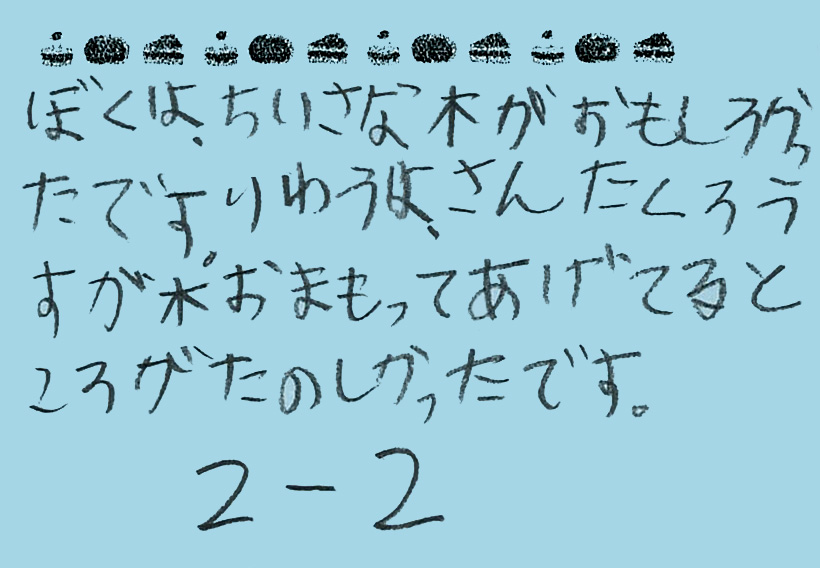 ぼくは、ちいさな木がおもしろかっ
たです。りゆうは、さんたくろう
すが木おまもってあげてると
ころがたのしかったです。
2-2